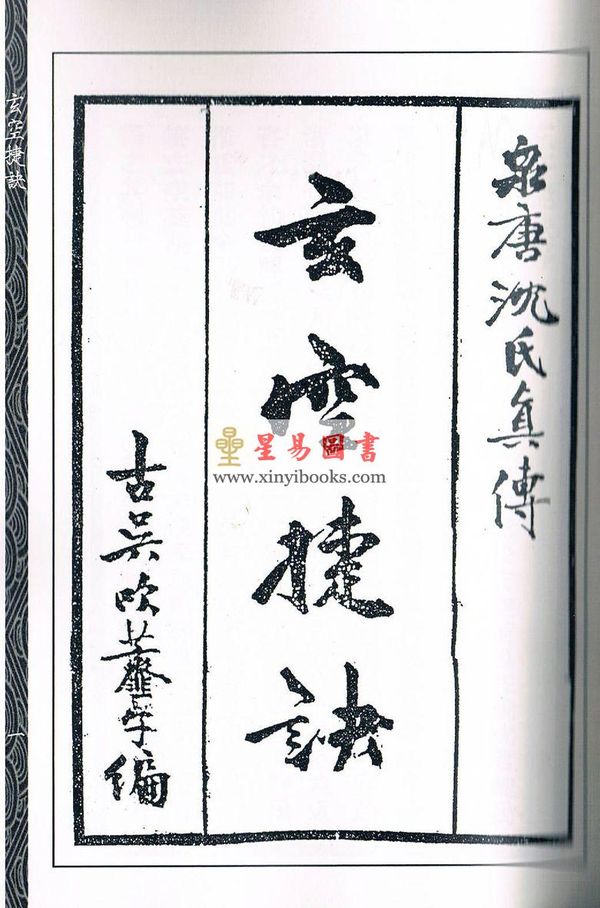 泉唐沈氏眞傳
玄空捷訣
古吳吹虀子編
玄空捷訣
一
星易圖書
www.xinyibooks.com